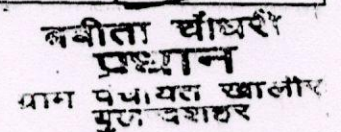 बबीता चौधरी
प्रधान
ग्राम पंचायत खालौर
बुलन्दशहर